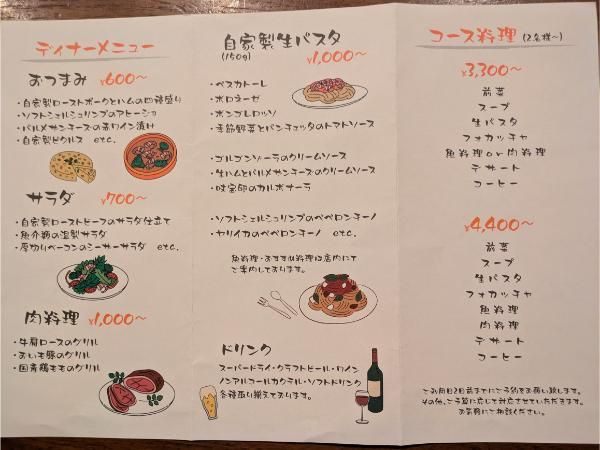 ディナーメニュー
おつまみ ¥600〜
・自家製ローストポークとハムの四種盛り
・ソフトシェルシュリンプのアヒージョ
・パルメザンチーズの赤ワイン漬け
・自家製ピクルス etc.
サラダ ¥700〜
・自家製ローストビーフのサラダ仕立て
・魚介類の温製サラダ
・厚切りベーコンのシーザーサラダ etc.
肉料理 ¥1,000〜
・牛肩ロースのグリル
・おいも豚のグリル
・国産鶏もものグリル
自家製生パスタ
(150g) ¥1,000〜
・ペスカトーレ
・ボロネーゼ
・ボンゴレロッソ
・季節野菜とパンチェッタのトマトソース
・ゴルゴンゾーラのクリームソース
・生ハムとパルメザンチーズのクリームソース
・味宝卵のカルボナーラ
・ソフトシェルシュリンプのペペロンチーノ
・ヤリイカのペペロンチーノ etc.
魚料理・おすすめ料理は店内にて
ご案内しております。
ドリンク
スーパードライ・クラフトビール・ワイン
ノンアルコールカクテル・ソフトドリンク
各種取り揃えております。
コース料理 (2名様〜)
¥3,300〜
前菜
スープ
生パスタ
フォカッチャ
魚料理or肉料理
デザート
コーヒー
¥4,400〜
前菜
スープ
生パスタ
フォカッチャ
魚料理
肉料理
デザート
コーヒー
ご利用日2日前までにご予約をお願い致します。
その他、ご予算に応じて対応させていただきます。
お気軽にご相談ください。